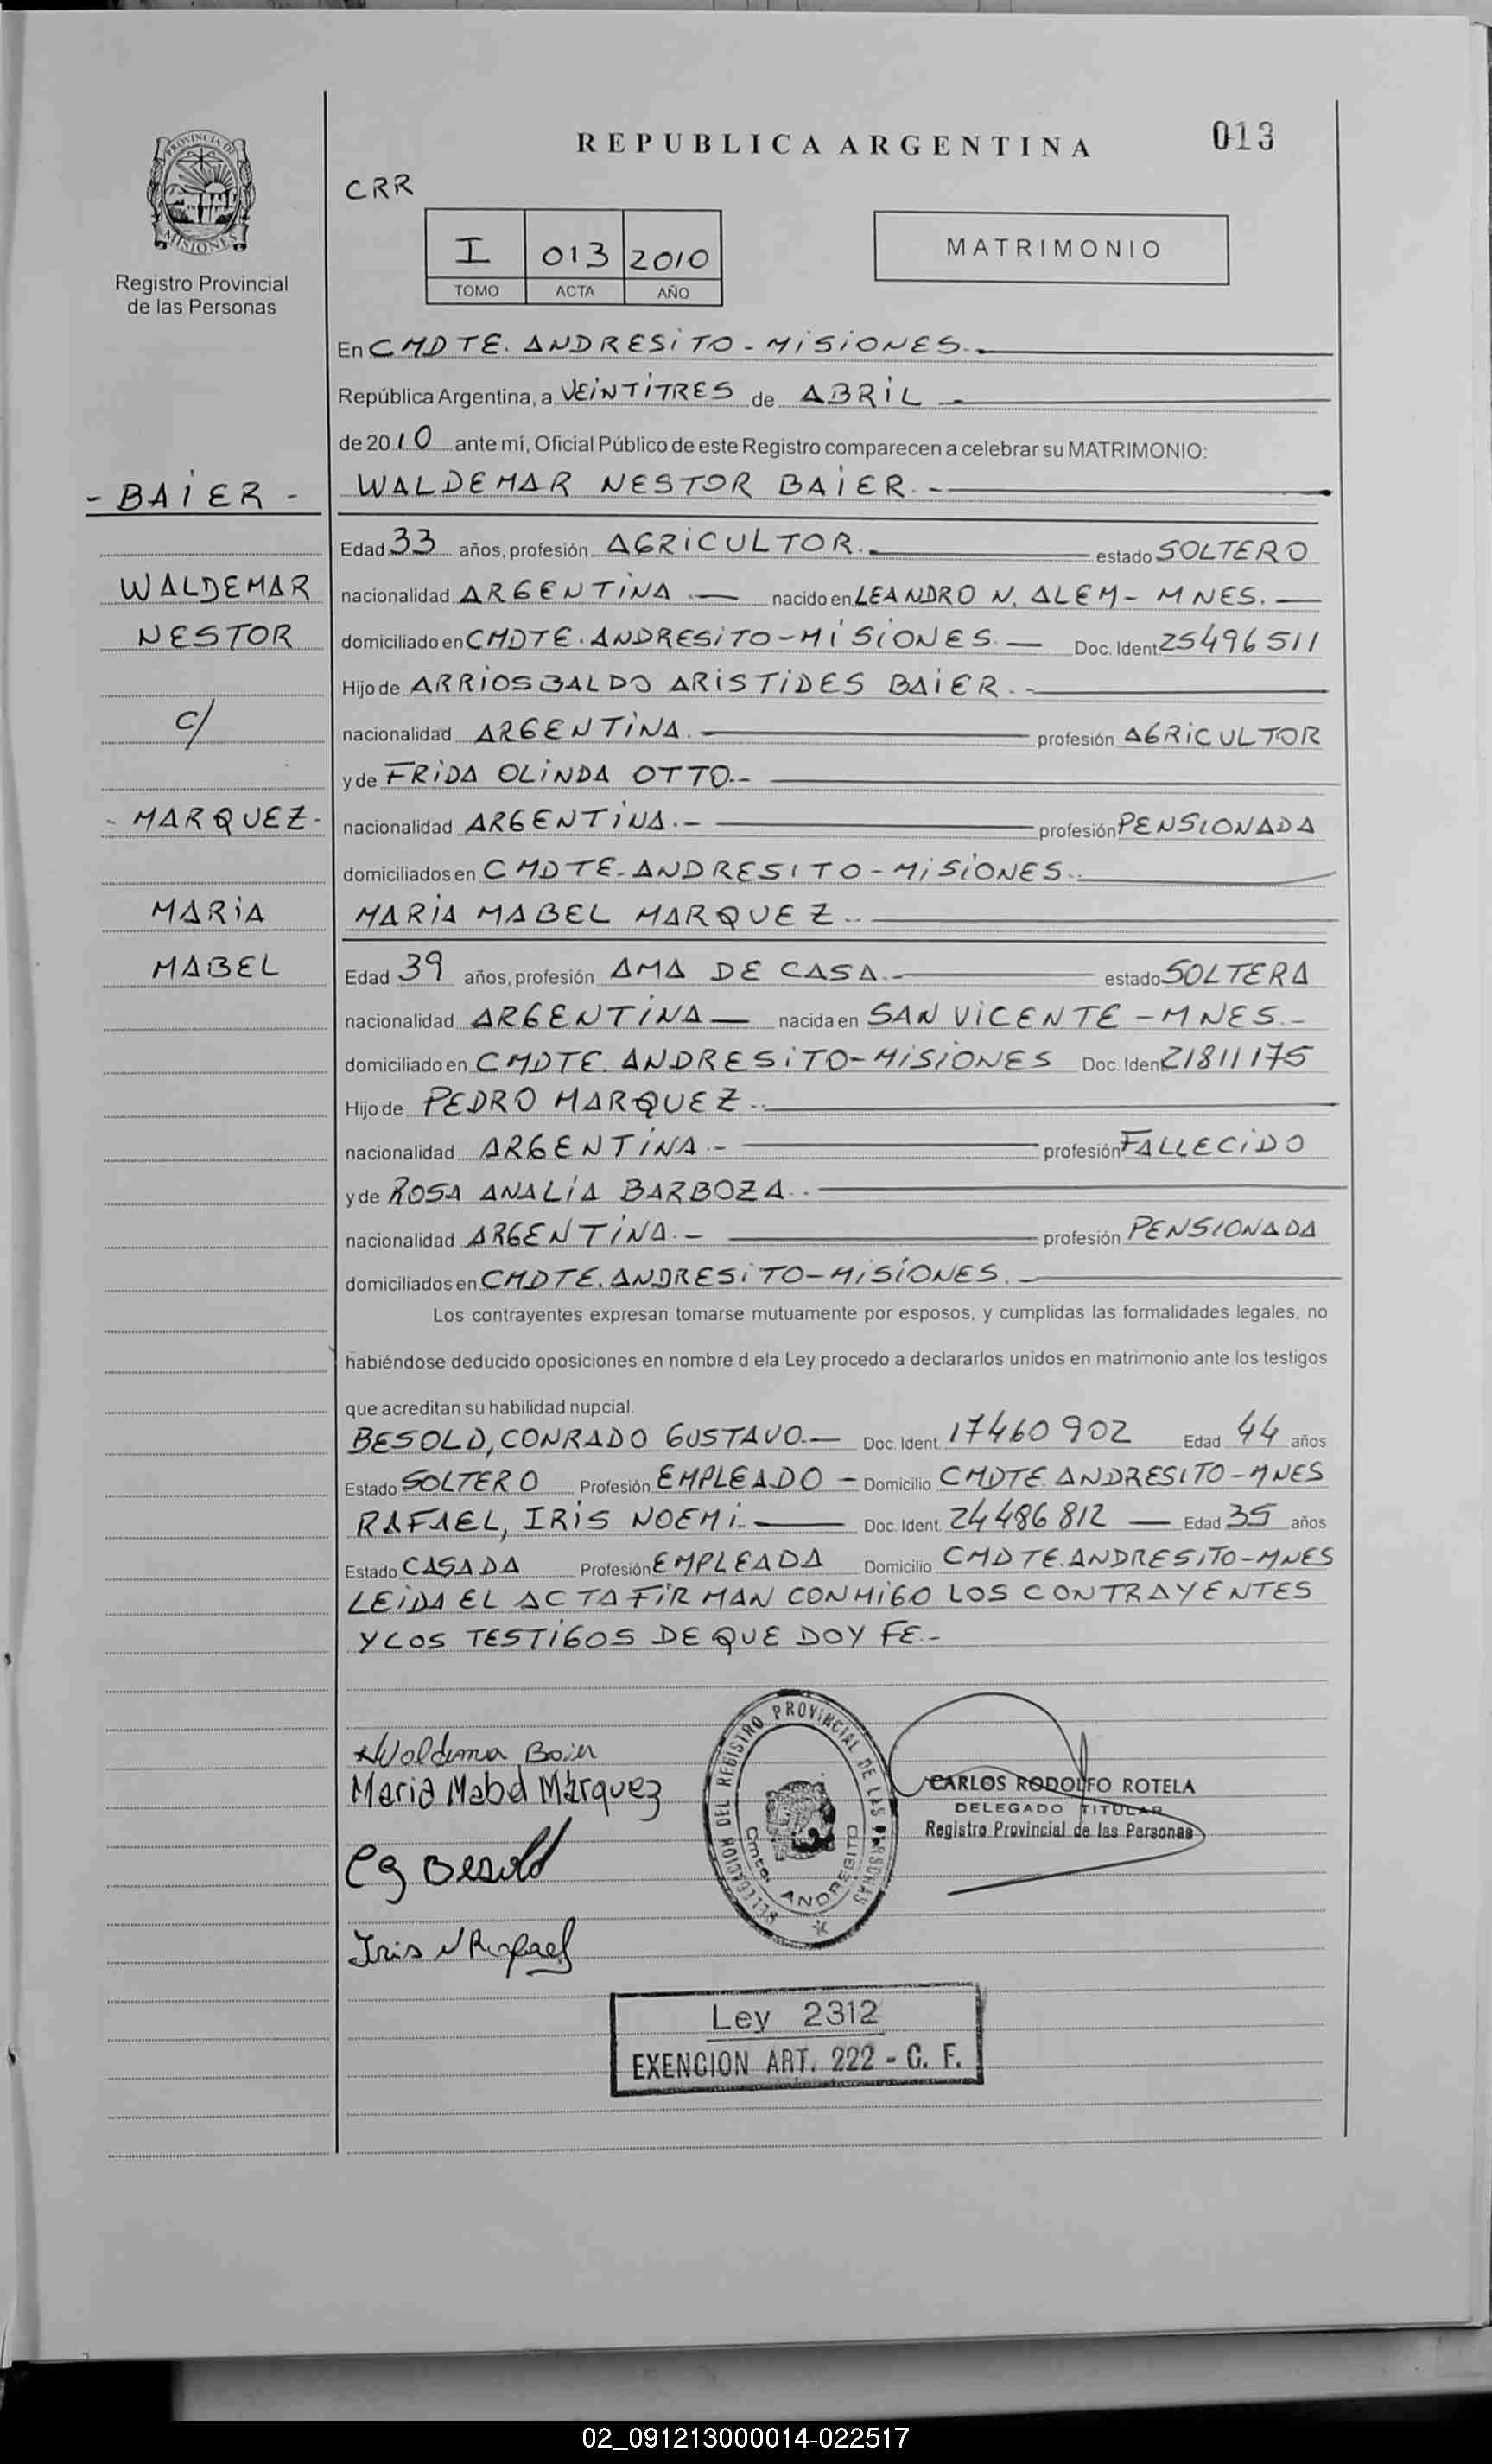 REPUBLICA ARGENTINA
013
PROVINCIA DE
MISIONES
Registro Provincial
de las Personas
CRR
I 013 2010
TOMO ACTA AÑO
MATRIMONIO
En CMDTE. ANDRESITO - MISIONES.
República Argentina, a VEINTITRES de ABRIL
de 2010 ante mí, Oficial Público de este Registro comparecen a celebrar su MATRIMONIO:
- BAIER - WALDEMAR NESTOR BAIER.-
Edad 33 años, profesión AGRICULTOR. estado SOLTERO
WALDEMAR nacionalidad ARGENTINA.- nacido en LEANDRO N. ALEM - MNES.
NESTOR domiciliado en CMDTE. ANDRESITO - MISIONES. Doc. Ident 25496511
Hijo de ARRIOSBALDO ARISTIDES BAIER.-
c/ nacionalidad ARGENTINA. profesión AGRICULTOR
y de FRIDA OLINDA OTTO.-
- MARQUEZ - nacionalidad ARGENTINA.- profesión PENSIONADA
domiciliados en CMDTE. ANDRESITO - MISIONES.
MARIA MARIA MABEL MARQUEZ.-
MABEL Edad 39 años, profesión AMA DE CASA.- estado SOLTERA
nacionalidad ARGENTINA nacida en SAN VICENTE - MNES.-
domiciliado en CMDTE. ANDRESITO - MISIONES Doc. Iden 21811175
Hijo de PEDRO MARQUEZ.-
nacionalidad ARGENTINA.- profesión FALLECIDO
y de ROSA ANALIA BARBOZA.-
nacionalidad ARGENTINA.- profesión PENSIONADA
domiciliados en CMDTE. ANDRESITO - MISIONES.
Los contrayentes expresan tomarse mutuamente por esposos, y cumplidas las formalidades legales, no
habiéndose deducido oposiciones en nombre d ela Ley procedo a declararlos unidos en matrimonio ante los testigos
que acreditan su habilidad nupcial.
BESOLD, CONRADO GUSTAVO.- Doc. Ident. 17460902 Edad 44 años
Estado SOLTERO Profesión EMPLEADO - Domicilio CMDTE. ANDRESITO - MNES
RAFAEL, IRIS NOEMI.- Doc. Ident. 24486812 Edad 35 años
Estado CASADA Profesión EMPLEADA Domicilio CMDTE. ANDRESITO - MNES
LEIDA EL ACTA FIRMAN CONMIGO LOS CONTRAYENTES
Y LOS TESTIGOS DE QUE DOY FE.-
Waldema Baier
Maria Mabel Márquez
CG Besold
Iris N Rafael
DELEGACION DEL REGISTRO PROVINCIAL DE LAS PERSONAS
Cmte. ANDRESITO
CARLOS RODOLFO ROTELA
DELEGADO TITULAR
Registro Provincial de las Personas
Ley 2312
EXENCION ART. 222 - C. F.
02_091213000014-022517